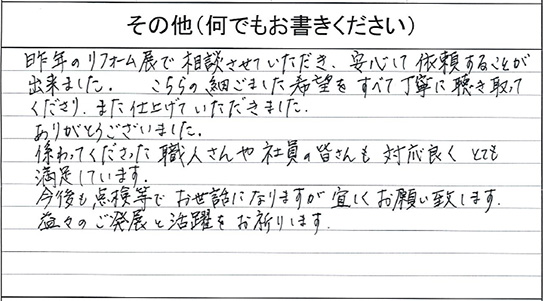 その他(何でもお書きください)
昨年のリフォーム展で相談させていただき、安心して依頼することが
出来ました。 こちらの細ごました希望をすべて丁寧に聴き取って
くださり、また仕上げていただきました。
ありがとうございました。
係わってくださった職人さんや社員の皆さんも対応良くとても
満足しています。
今後も点検等でお世話になりますが宜しくお願い致します.
益々のご発展と活躍をお祈りします.